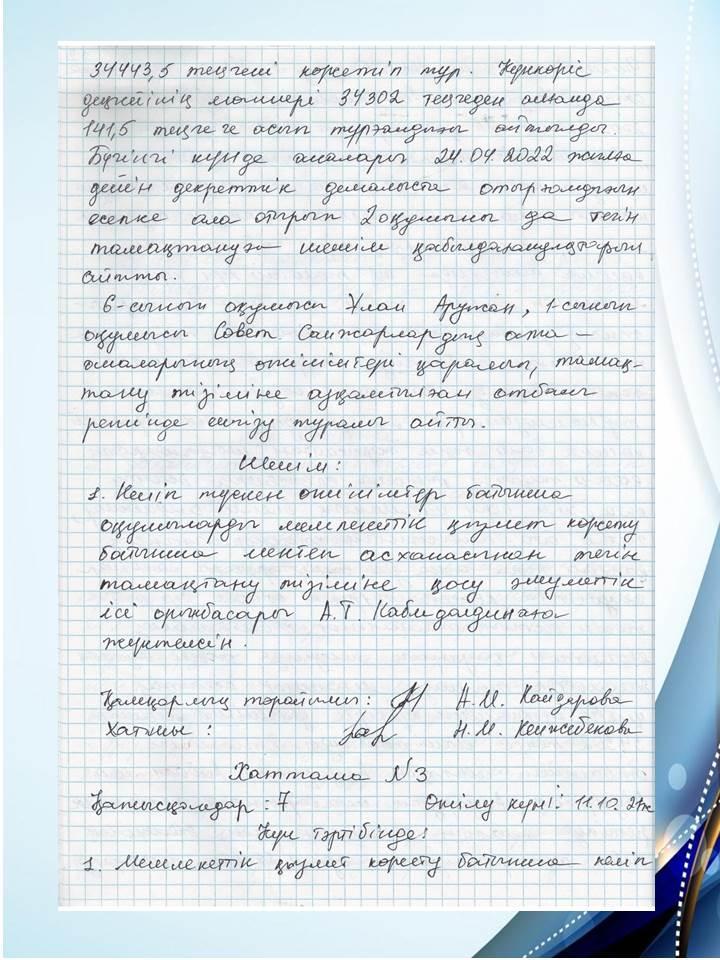 34443,5 теңгені көрсетіп тұр. Күнкөріс
деңгейінің мөлшері 34302 теңгеден алғанда
141,5 теңгеге асып тұрғандығы айтылды.
Бүгінгі күнде аналары 24.04.2022 жылға
дейін декреттік демалыста отырғандығын
есепке ала отырып 2 оқушыны да тегін
тамақтануға шешім қабылдағандықтарын
айтты.
6-сынып оқушысы Ұлан Аружан, 1-сынып
оқушысы Совет Санжарлардың ата-
аналарының өтініштері қаралып, тамақ-
тану тізіміне азқамтылған отбасы
ретінде енгізу туралы айтты.
Шешім:
1. Келіп түскен өтініштер бойынша
оқушыларды мемлекеттік қызмет көрсету
бойынша мектеп асханасынан тегін
тамақтану тізіміне қосу әлеуметтік
ісі орынбасары А.Т. Кабидолдинаға
жүктелсін.
Қамқорлық төрайымы: Н.М. Кайдарова
Хатшы: Н.М. Кенжебекова
Хаттама №3
Қатысқандар: 7 Өтілу күні: 11.10.21ж
Күн тәртібінде:
1. Мемлекеттік қызмет көрсету бойынша келіп